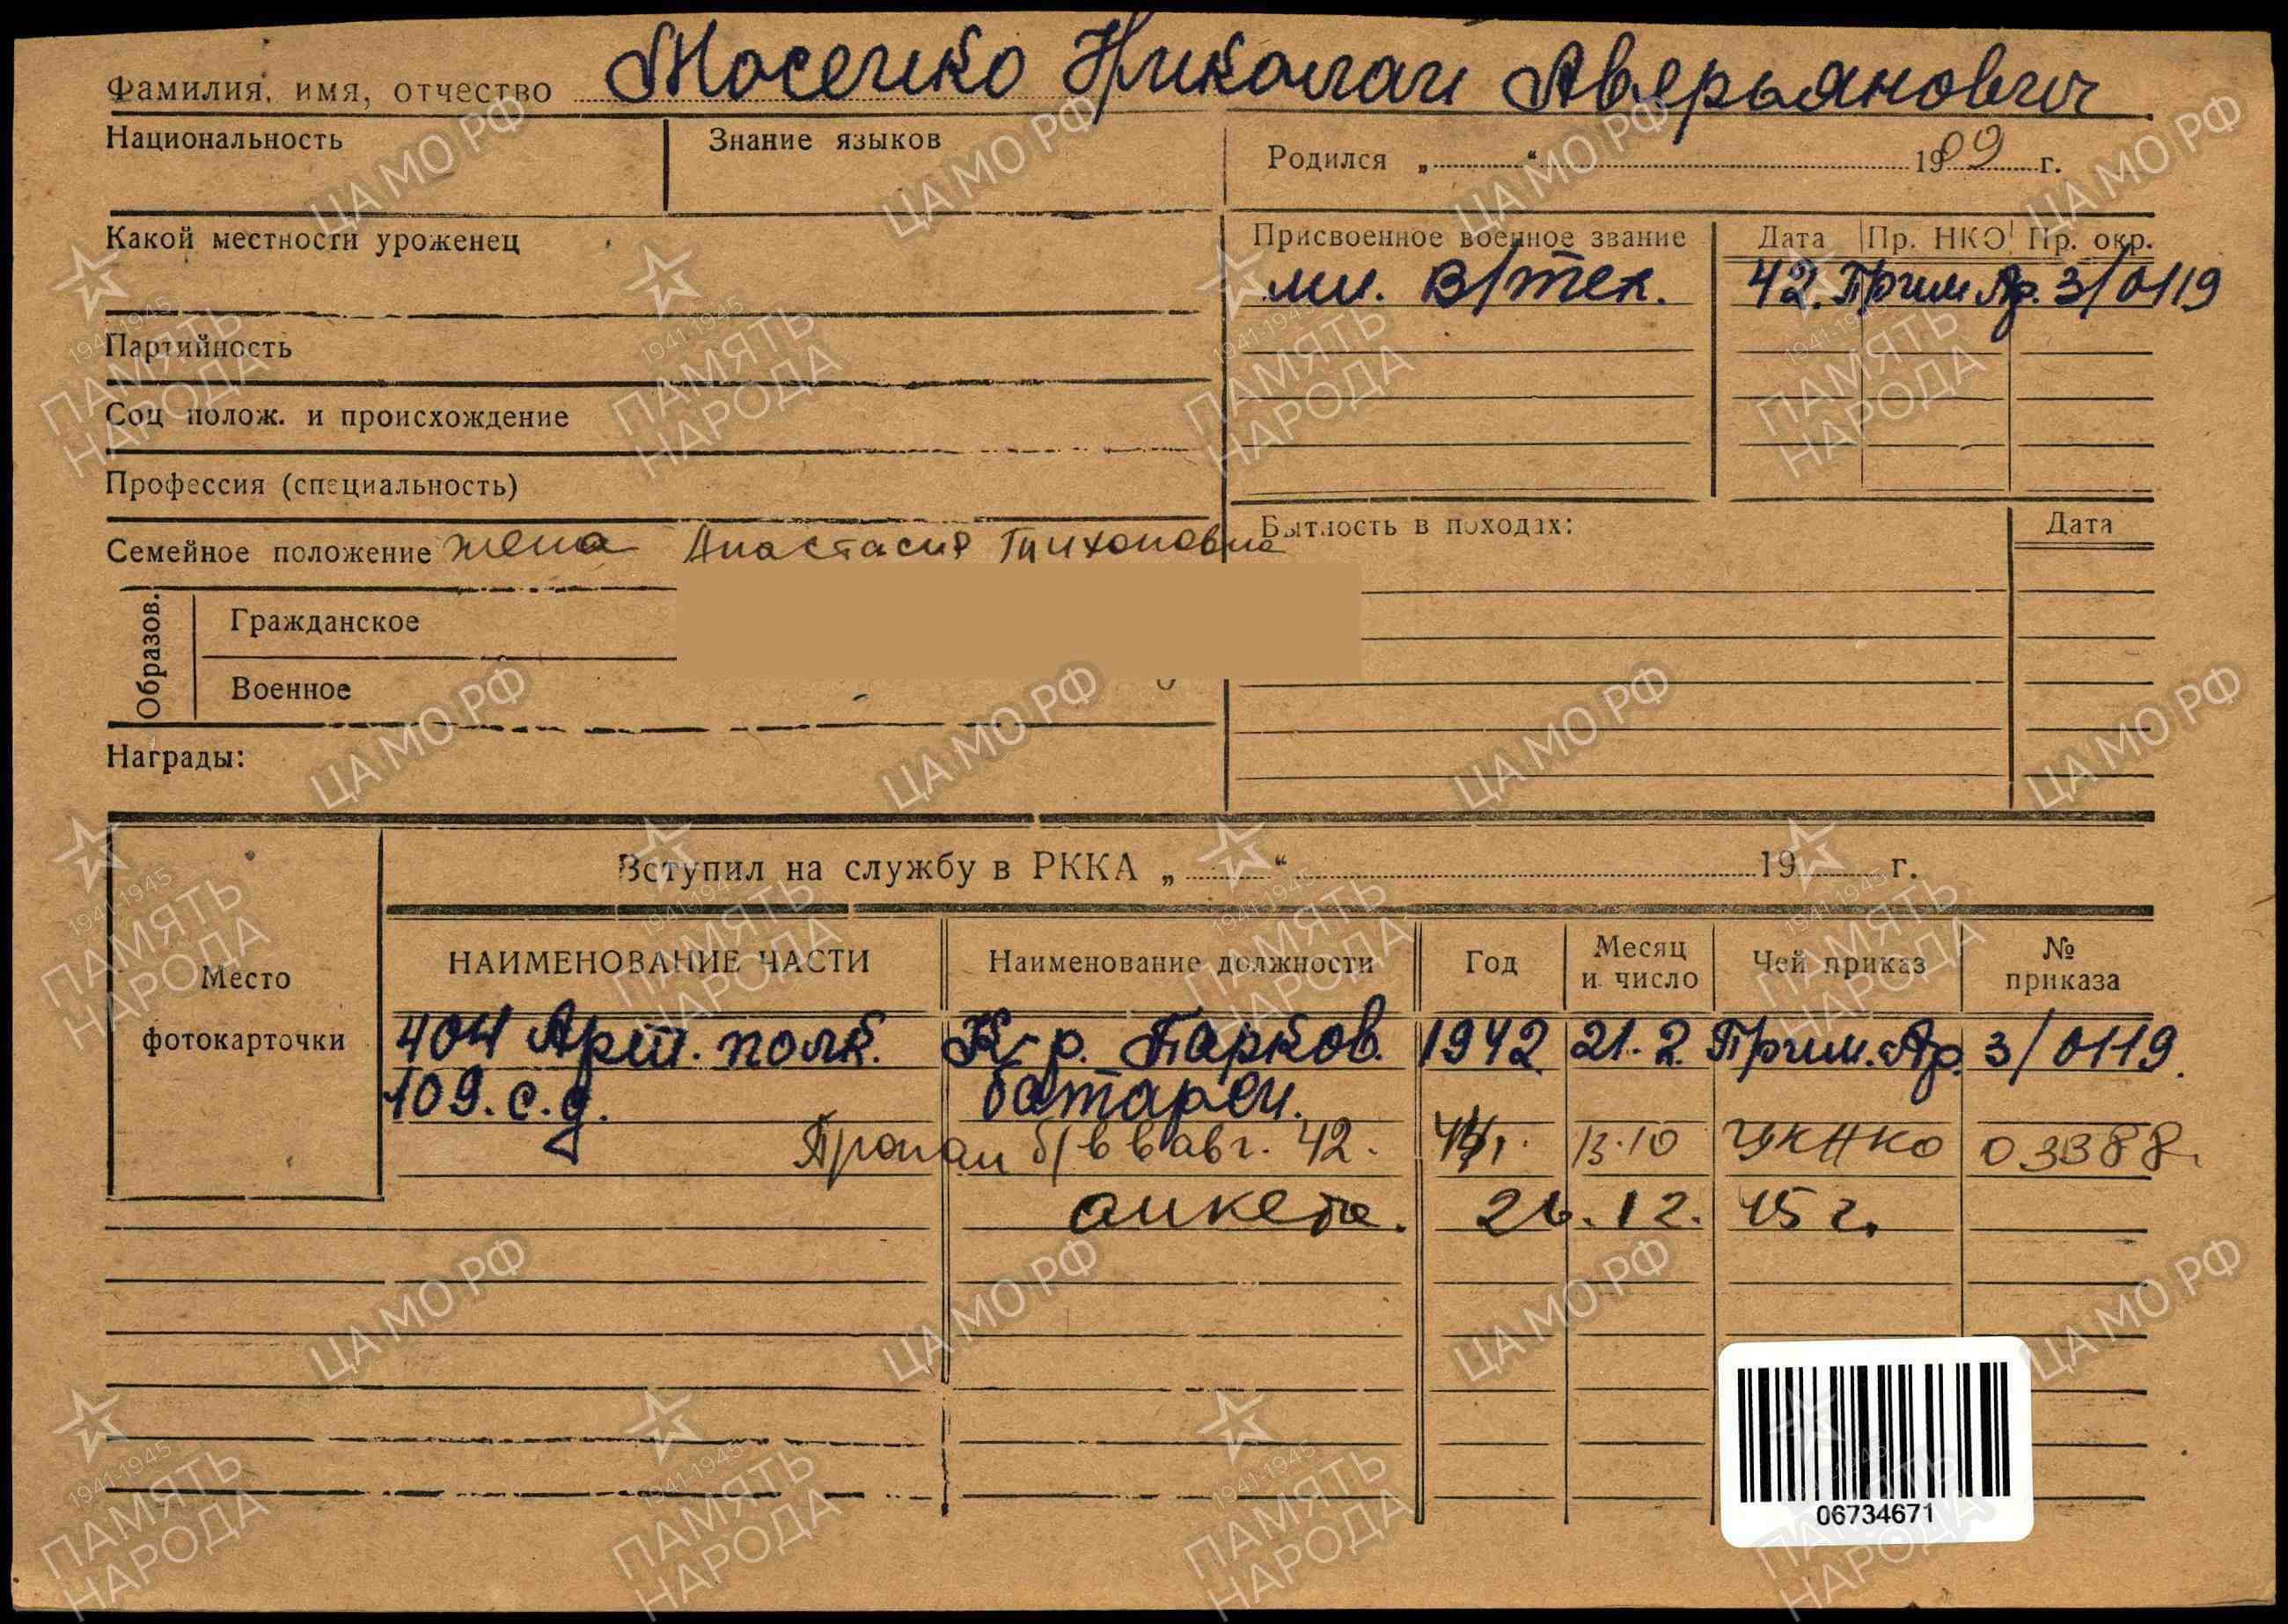 Фамилия, имя, отчество Мосейко Николай Аверьянович
Национальность
Знание языков
Родился „ “ 1909 г.
Какой местности уроженец
Присвоенное военное звание
Дата
Пр. НКО
Пр. окр.
мл. в/тех.
42. Прим Ар. 3/0119
Партийность
Соц полож. и происхождение
Профессия (специальность)
Семейное положение жена Анастасия Тихоновна
Бытность в походах:
Дата
Образов.
Гражданское
Военное
Награды:
Вступил на службу в РККА „ “ 19 г.
Место
фотокарточки
НАИМЕНОВАНИЕ ЧАСТИ
Наименование должности
Год
Месяц
и число
Чей приказ
№
приказа
404 Арт. полк. К-р. Парков. 1942 21.2. Прим. Ар. 3/0119.
109. с. д. батареи.
Пропал б/в в авг. 42. 13.10 ГУКНКО 03388
анкета. 26.12. 45 г.
06734671
ЦАМО РФ
1941-1945
ПАМЯТЬ
НАРОДА